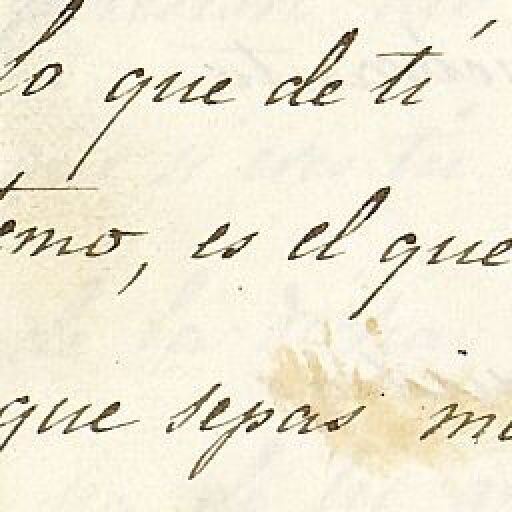 lo que de tí
temo, es el que
que sepas